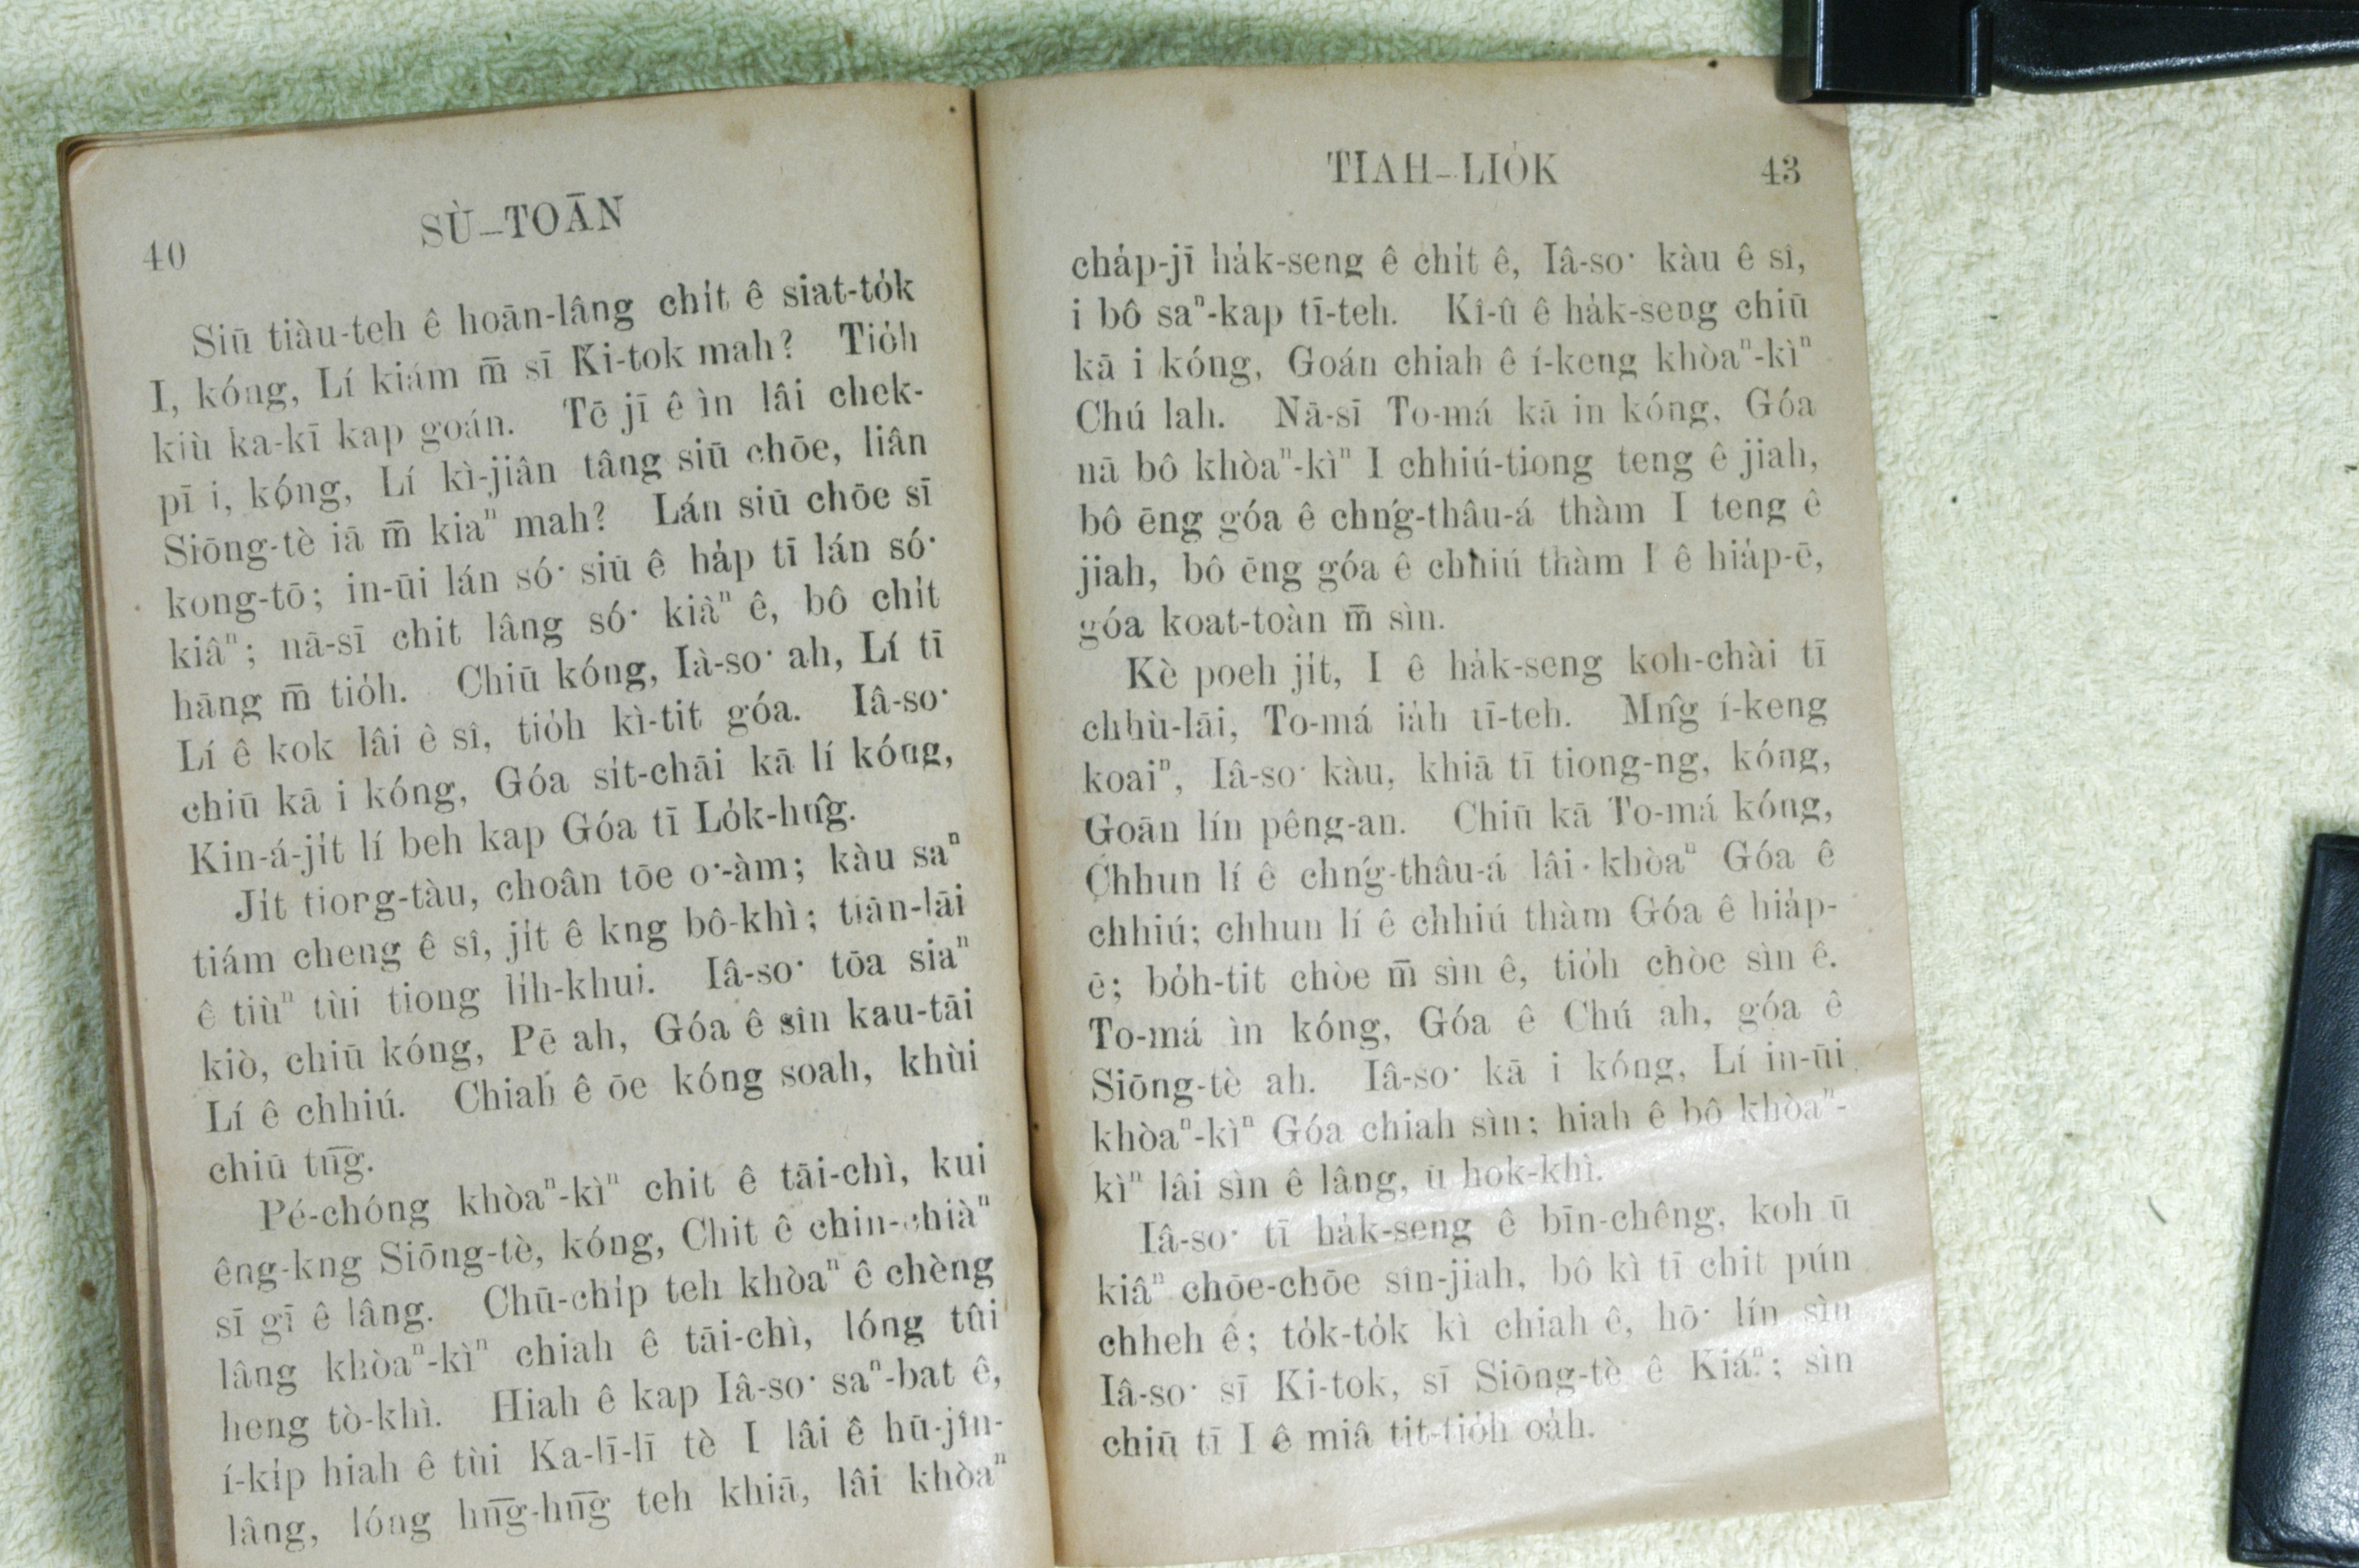 40
SÙ–TOĀN
Siū tiàu-teh ê hoān-lâng chi̍t ê siat-to̍k
I, kóng, Lí kiám m̄ sī Ki-tok mah? Tio̍h
kiù ka-kī kap goán. Tē jī ê ìn lâi chek-
pī i, kóng, Lí kì-jiân tâng siū chōe, liân
Siōng-tè iā m̄ kiaⁿ mah? Lán siū chōe sī
kong-tō; in-ūi lán só͘ siū ê ha̍p tī lán só͘
kiâⁿ; nā-sī chit lâng só͘ kiàⁿ ê, bô chi̍t
hāng m̄ tio̍h. Chiū kóng, Ià-so͘ ah, Lí tī
Lí ê kok lâi è sî, tio̍h kì-tit góa. Iâ-so͘
chiū kā i kóng, Góa si̍t-chāi kā lí kóng,
Kin-á-ji̍t lí beh kap Góa tī Lo̍k-hn̂g.
Ji̍t tiorg-tàu, choân tōe o͘-àm; kàu saⁿ
tiám cheng ê sî, ji̍t ê kng bô-khì; tiān-lāi
ê tiùⁿ tùi tiong li̍h-khui. Iâ-so͘ tōa siaⁿ
kiò, chiū kóng, Pē ah, Góa ê sîn kau-tāi
Lí ê chhiú. Chiah ê ōe kóng soah, khùi
chiū tn̄g.
Pé-chóng khòaⁿ-kìⁿ chit ê tāi-chì, kui
êng-kng Siōng-tè, kóng, Chit ê chin-chiàⁿ
sī gī ê lâng. Chū-chi̍p teh khòaⁿ ê chèng
lâng khòaⁿ-kìⁿ chiah ê tāi-chì, lóng tûi
heng tò-khì. Hiah ê kap Iâ-so͘ saⁿ-bat ê,
í-ki̍p hiah ê tùi Ka-lī-lī tè I lâi ê hū-jîn-
lâng, lóng hn̄g-hn̄g teh khiā, lâi khòaⁿ
TIAH–LIO̍K
43
cha̍p-jī ha̍k-seng ê chi̍t ê, Iâ-so͘ kàu ê sî,
i bô saⁿ-kap tī-teh. Kî-û ê ha̍k-seng chiū
kā i kóng, Goán chiah ê í-keng khòaⁿ-kìⁿ
Chú lah. Nā-sī To-má kā in kóng, Góa
nā bô khòaⁿ-kìⁿ I chhiú-tiong teng ê jiah,
bô ēng góa ê chńg-thâu-á thàm I teng ê
jiah, bô ēng góa ê chhiú thàm I ê hia̍p-ē,
góa koat-toàn m̄ sìn.
Kè poeh ji̍t, I ê ha̍k-seng koh-chài tī
chhù-lāi, To-má ia̍h tī-teh. Mn̂g í-keng
koaiⁿ, Iâ-so͘ kàu, khiā tī tiong-ng, kóng,
Goān lín pêng-an. Chiū kā To-má kóng,
Chhun lí ê chńg-thâu-á lâi khòaⁿ Góa ê
chhiú; chhun lí ê chhiú thàm Góa ê hia̍p-
ē; bo̍h-tit chòe m̄ sìn ê, tio̍h chòe sìn ê.
To-má ìn kóng, Góa ê Chú ah, góa ê
Siōng-tè ah. Iâ-so͘ kā i kóng, Lí in-ūi
khòaⁿ-kìⁿ Góa chiah sìn; hiah ê bô khòaⁿ-
kìⁿ lâi sìn ê lâng, ū hok-khì.
Iâ-so͘ tī ha̍k-seng ê bīn-chêng, koh ū
kiâⁿ chōe-chōe sîn-jiah, bô kì tī chit pún
chheh ê; to̍k-to̍k kì chiah ê, hō͘ lín sìn
Iâ-so͘ sī Ki-tok, sī Siōng-tè ê Kiáⁿ; sìn
chiū tī I ê miâ tit-tio̍h oa̍h.